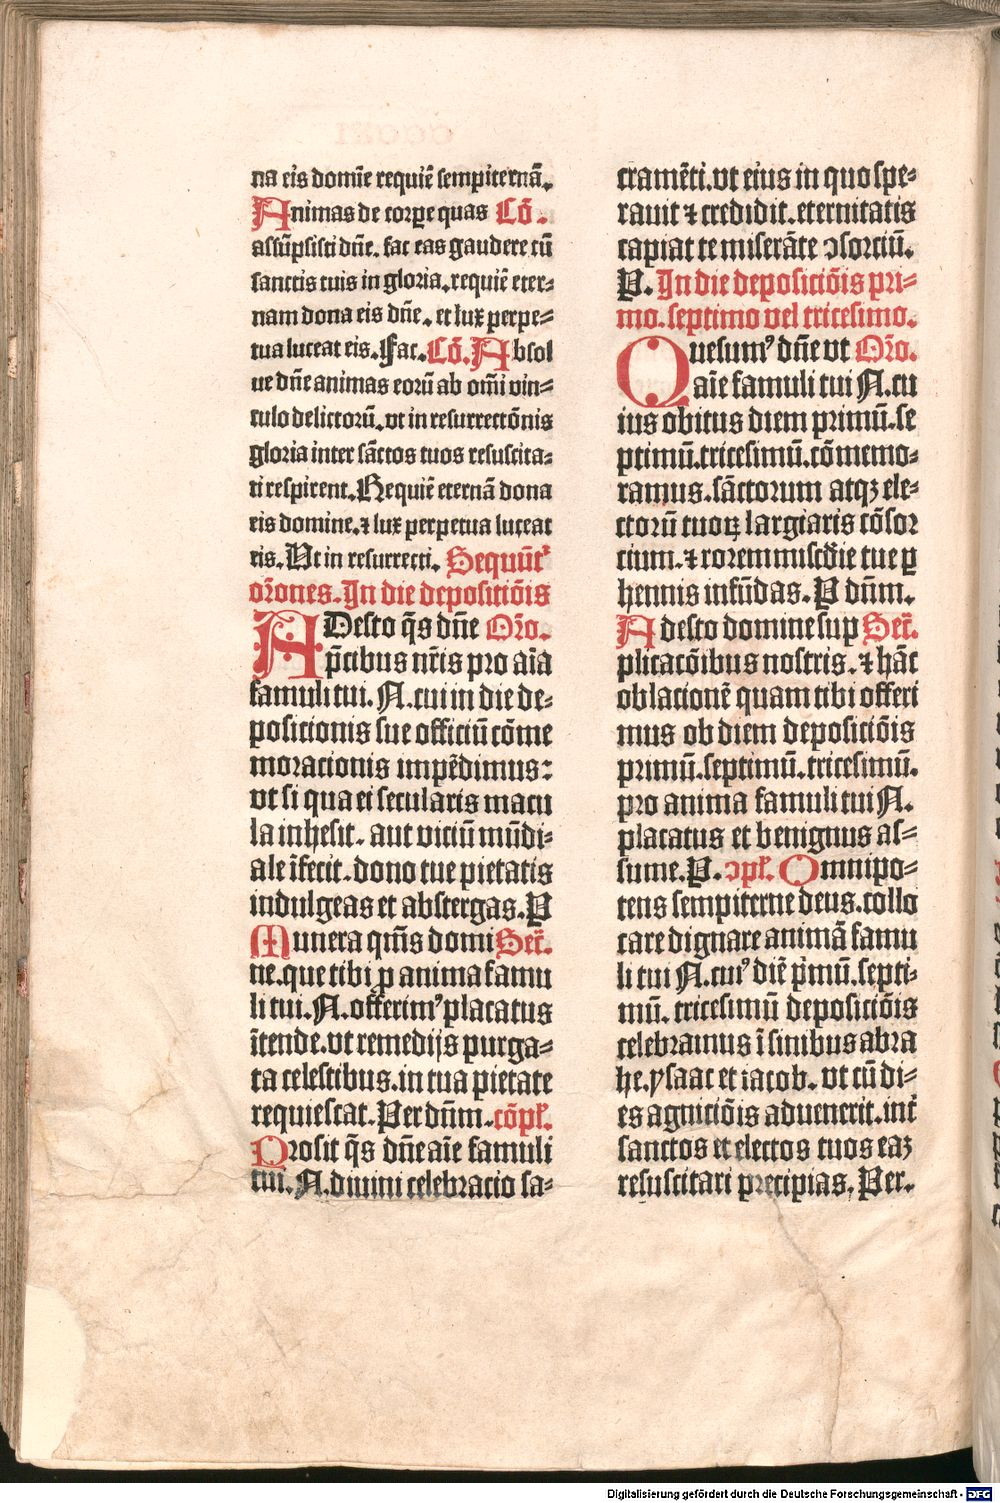 na eis domīe requiē sempiternā.
Animas de corpe quas Cō.
assūpsisti dn̄e. fac eas gaudere cū
sanctis tuis in gloria. requiē eter⸗
nam dona eis dn̄e. et lux perpe⸗
tua luceat eis. Fac. Cō. Absol
ue dn̄e animas eorū ab om̄i vin⸗
culo delictorū. vt in resurrectōnis
gloria inter sāctos tuos resuscita⸗
ti respirent. Requiē eternā dona
eis domine. ⁊ lux perpetua luceat
eis. Vt in resurrecti. Sequūtʳ
or̄ones. In die depositiōis
ADesto q̄s dn̄e Or̄o.
p̄cibus nr̄is pro aīa
famuli tui. N. cui in die de⸗
positionis sue officiū cōme
moracionis impēdimus:
vt si qua ei secularis macu
la inhesit. aut viciū mūdi⸗
ale īfecit. dono tue pietatis
indulgeas et abstergas. P
Munera qm̄s domi Secr̄.
ne. que tibi ꝓ anima famu
li tui. N. offerimꝰ placatus
ītende. vt remedijs purga⸗
ta celestibus. in tua pietate
requiescat. Per dn̄m. cōpl̄.
Prosit q̄s dn̄e aīe famuli
tui. N. diuini celebracio sa⸗
cramēti. vt eius in quo spe⸗
rauit ⁊ credidit. eternitatis
capiat te miserāte ↄsorciū.
P. In die depositiōis pri⸗
mo. septimo vel tricesimo.
Quesumꝰ dn̄e vt Or̄o.
aīe famuli tui N. cu
ius obitus diem primū. se
ptimū. tricesimū. cōmemo⸗
ramus. sāctorum atqꝫ ele⸗
ctorū tuoꝝ largiaris cōsor
cium. ⁊ rorem misc̄die tue ꝑ
hennis infūdas. P dn̄m.
Adesto domine sup Secr̄.
plicacōibus nostris. ⁊ hāc
oblacionē quam tibi offeri
mus ob diem depositiōis
primū. septimū. tricesimū.
pro anima famuli tui N.
placatus et benignus as⸗
sume. P. ↄpl̄. Omnipo⸗
tens sempiterne deus. collo
care dignare animā famu
li tui N. cuiꝰ diē p̄mū. septi⸗
mū. tricesimū depositiōis
celebramus ī sinibus abra
he. ysaac et iacob. vt cū di⸗
es agniciōis aduenerit. int̄
sanctos et electos tuos eaꝫ
resuscitari precipias. Per.
Digitalisierung gefördert durch die Deutsche Forschungsgemeinschaft - DFG